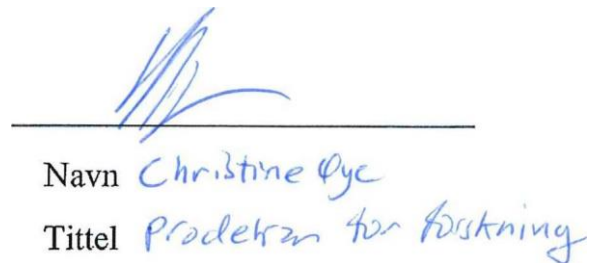 Navn Christine Øye
Tittel Prodekan for forskning